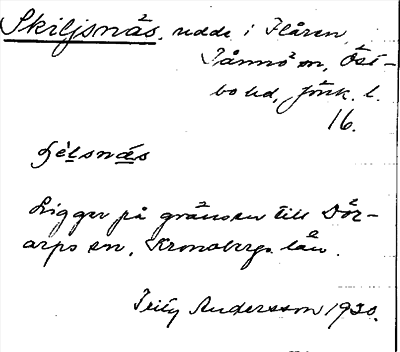 Skiljsnäs, udde i Flåren,
Tånnö sn, Öst-
bo hd, Jönk. l.
16.
ʃèlsnäs
Ligger på gränsen till Dör-
arps sn, Kronobergs län.
Fritz Andersson 1930.